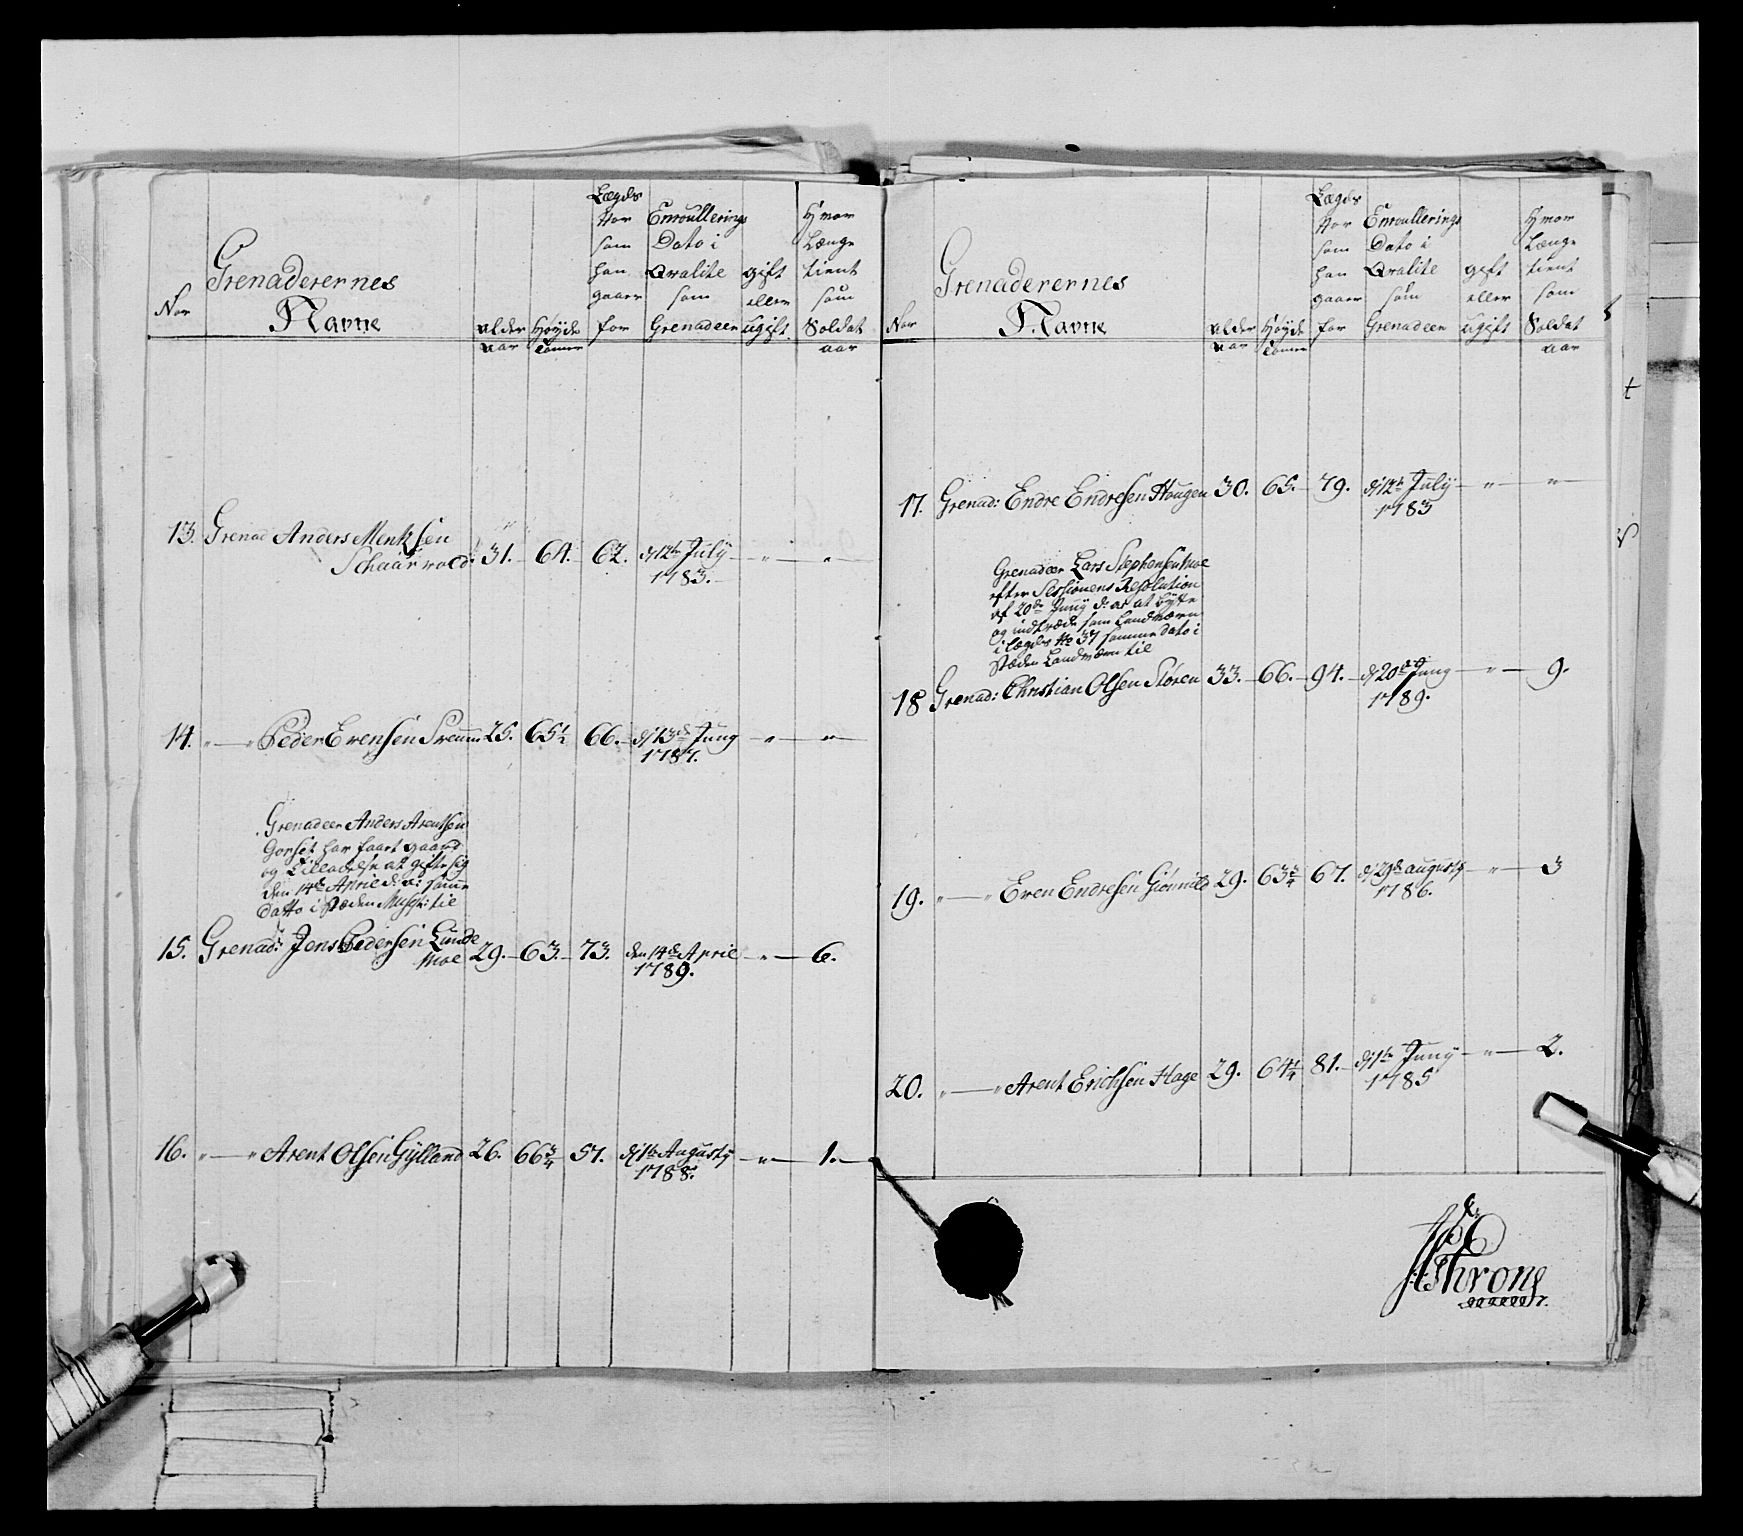 Nor
Grenaderernes
Navne
alder
aar
Høyde
Tomer
Lægds
Nor
som
han
gaaer
for
Enroullerings
Dato i
Qvalite
som
Grenadeer
gift
eller
ugift.
Hvor
Længe
tient
som
Soldat
aar
13. Grenad Anders Mentzsen
Schaarvold: 31. 64. 62. d: 12te July
1783. " "
14. " — " Peder Evensen 25. 65½ 66. d: 13de Juny " "
1787.
Grenadeer Anders Arentsen
Gorset har faaet gaard
og Tilladelse at gifte sig
den 14de April d: a: samme
Datto i Stæden Musq: til
15. Grenad: Jens Pedersen Linde
Moe 29. 63. 73. den 14de April " 6.
1789.
16. " — " Arent Olsen Gylland 26. 66¾ 57. d: 1te Augusty " 1.
1788.
Nor
Grenaderernes
Navne
alder
aar
Høyde
Tomer
Lægds
Nor
som
han
gaaer
for
Enroullerings
Dato i
Qvalite
som
Grenadeer
gift
eller
ugift
Hvor
Længe
tient
som
Soldat
aar
17. Grenad: Endre Endresen Hougen 30. 65. 79. d: 12te July " "
1783
Grenadeer Lars Stephensen Moe
efter Sessionens Resolution
af 20de Juny d: a: at bytte
og indtræde som Landværn
i Lægdet No 37 samme Dato i
Stæden Landværn til
18 Grenad: Christian Olsen Støren 33. 66. 94. d: 20de Juny " 9.
1789.
19. " — " Even Endresen 29. 63¾ 67. d: 29de augusty " 3
1786.
20. " — " Arent Erichsen Hage 29. 64¼ 81. d: 1te Juny " 2.
1785